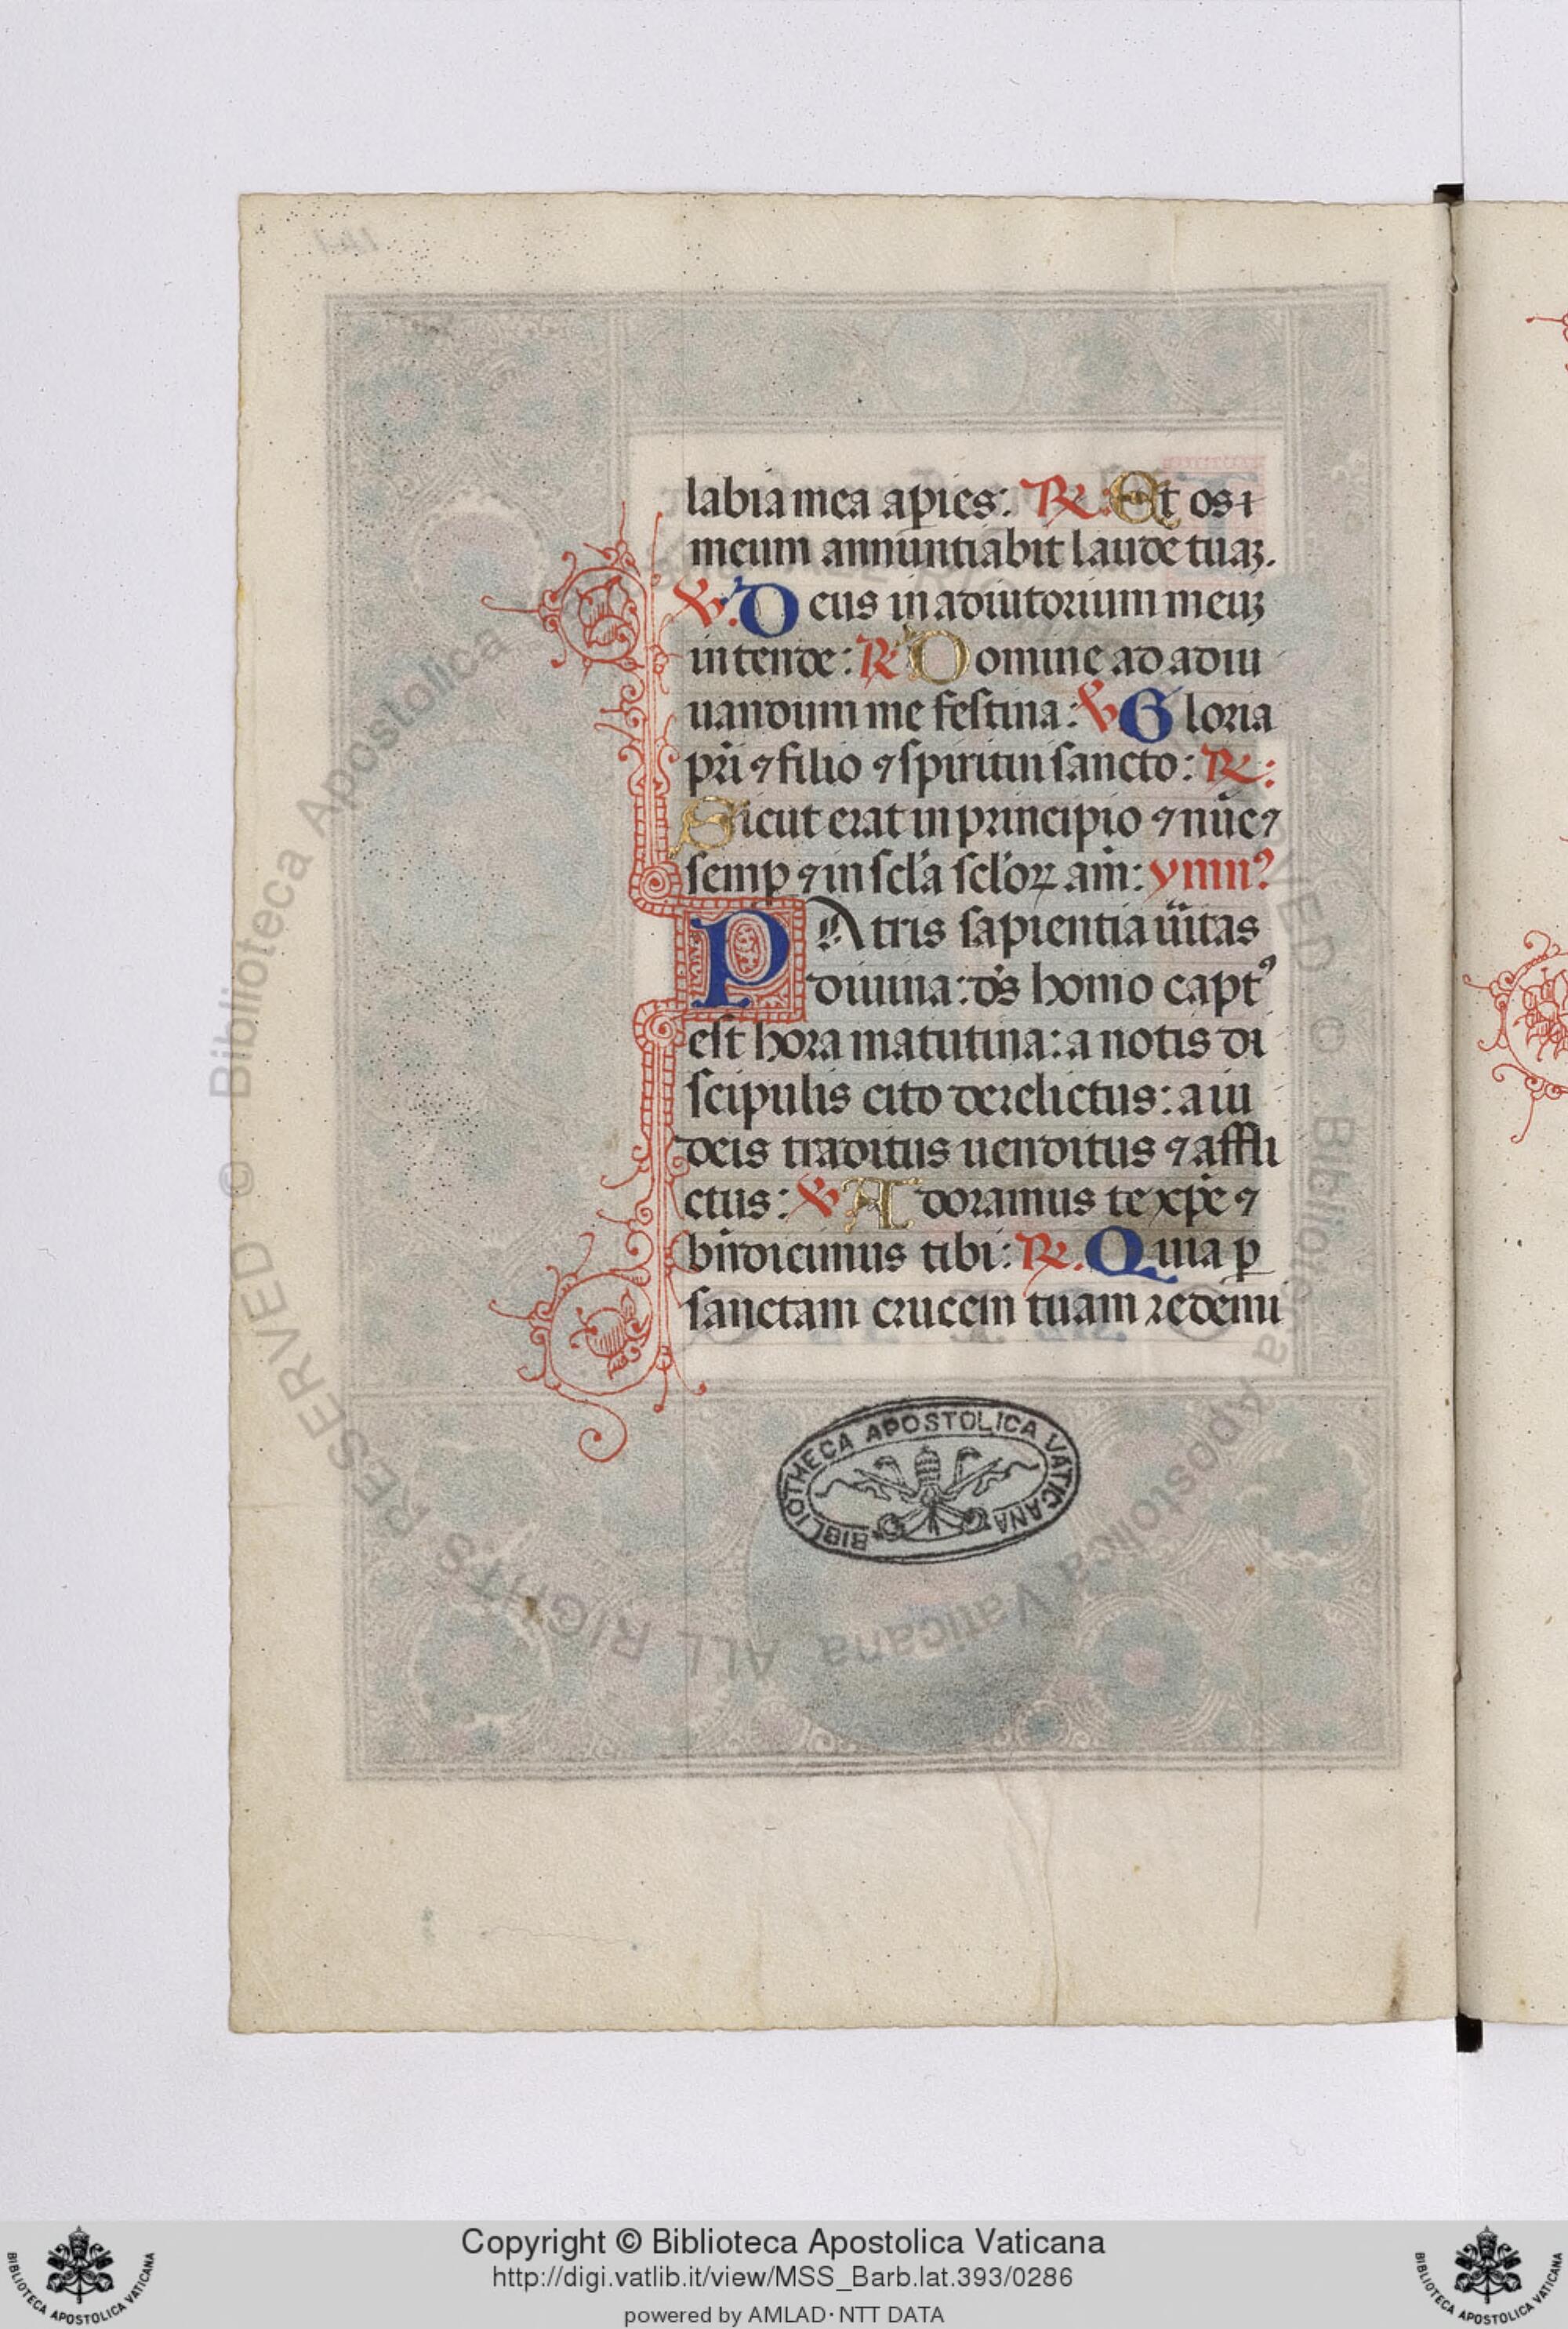 labia mea apies: ℟. Et os ⁊
meum annuntiabit laudē tuaꝫ.
℣. Deus in adiutorium meuꝫ
intende: ℟ Domine ad adiu
uandum me festina: ℣ Gloria
pr̄i ⁊ filio ⁊ spiritui sancto: ℟:
Sicut erat in principio ⁊ nūc ⁊
semꝑ ⁊ in scl̄a scl̄oꝝ am̄: ymnꝰ
PAtris sapientia ūitas
diuina: ds̄ homo captꝰ
est hora matutina: a notis di
scipulis cito derelictus: a iu
deis traditus uenditus ⁊ affli
ctus: ℣ Adoramus te xp̄e ⁊
bn̄dicimus tibi: ℟. Quia ꝑ
sanctam crucem tuam redemi
BIBLIOTHECA APOSTOLICA VATICANA
© Biblioteca Apostolica Vaticana ALL RIGHTS RESERVED
Copyright © Biblioteca Apostolica Vaticana
http://digi.vatlib.it/view/MSS_Barb.lat.393/0286
powered by AMLAD · NTT DATA
BIBLIOTECA APOSTOLICA VATICANA
BIBLIOTECA APOSTOLICA VATICANA